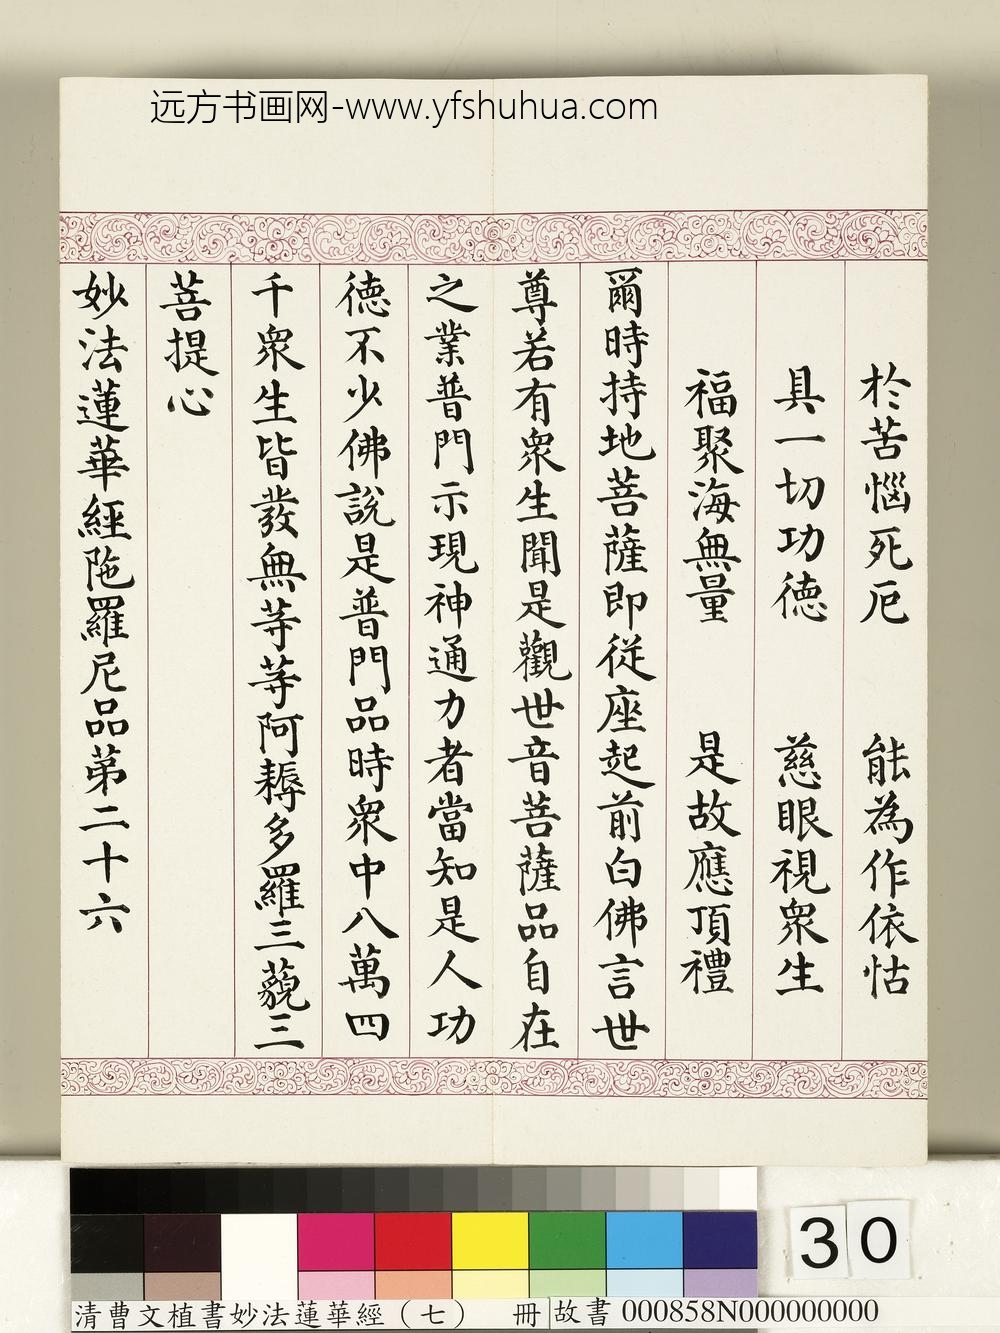 远方书画网-www.yfshuhua.com
於苦惱死厄　能為作依怙
具一切功德　慈眼視衆生
福聚海無量　是故應頂禮
爾時持地菩薩即從座起前白佛言世
尊若有衆生聞是觀世音菩薩品自在
之業普門示現神通力者當知是人功
德不少佛說是普門品時衆中八萬四
千衆生皆發無等等阿耨多羅三藐三
菩提心
妙法蓮華經陁羅尼品第二十六
30
清曹文植書妙法蓮華經（七）　冊 故書 000858N000000000